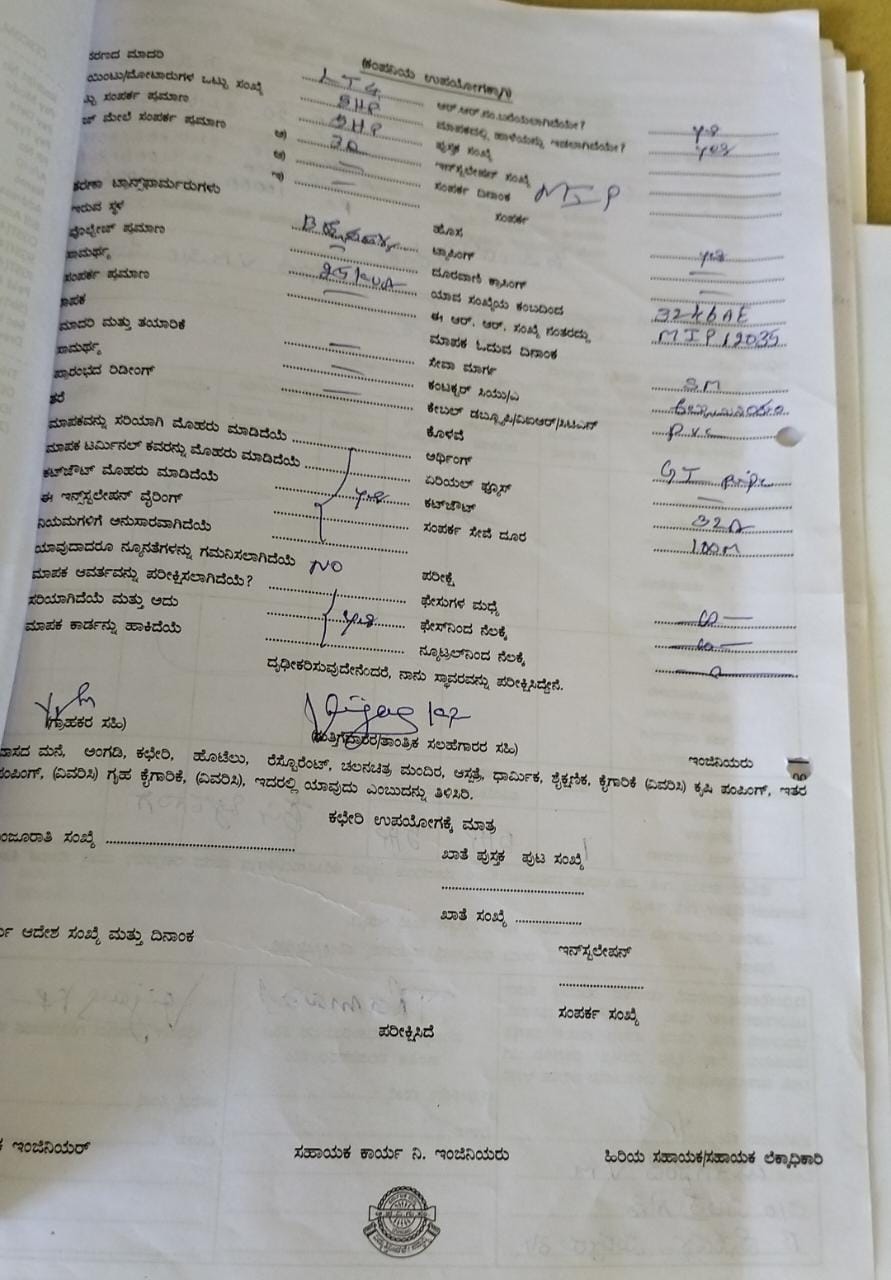 (ಕಂಪನಿಯ ಉಪಯೋಗಕ್ಕಾಗಿ)
ಕರಣದ ಮಾದರಿ LT4 ಆರ್.ಆರ್.ನಂ.ಬರೆಯಲಾಗಿದೆಯೇ? yes
ಯಂಟು/ಮೋಟಾರುಗಳ ಒಟ್ಟು ಸಂಖ್ಯೆ 5HP ಮಾಪಕದಲ್ಲಿ ಹಾಳೆಯನ್ನು ಇಡಲಾಗಿದೆಯೇ? yes
ಟ್ಟು ಸಂಪರ್ಕ ಪ್ರಮಾಣ 5HP ಪುಸ್ತಕ ಸಂಖ್ಯೆ
ಜ್ ಮೇಲೆ ಸಂಪರ್ಕ ಪ್ರಮಾಣ ಅ) ಇನ್‌ಸ್ಟಲೇಷನ್ ಸಂಖ್ಯೆ
ಆ) — ಸಂಪರ್ಕ ದಿನಾಂಕ MIP
ಇ) — ಸಂಪರ್ಕ
ಕರಣಾ ಟ್ರಾನ್ಸ್‌ಫಾರ್ಮರುಗಳು ಹೊಸ yes
ಇರುವ ಸ್ಥಳ ಟ್ಯಾಪಿಂಗ್ —
ವೋಲ್ಟೇಜ್ ಪ್ರಮಾಣ — ದೂರವಾಣಿ ಕ್ರಾಸಿಂಗ್ —
ಸಾಮರ್ಥ್ಯ 25 KVA ಯಾವ ಸಂಖ್ಯೆಯ ಕಂಬದಿಂದ
ಸಂಪರ್ಕ ಪ್ರಮಾಣ — ಈ ಆರ್. ಆರ್. ಸಂಖ್ಯೆ ನಂತರದ್ದು MIP12035
ಾಪಕ ಮಾಪಕ ಓದುವ ದಿನಾಂಕ
ಮಾದರಿ ಮತ್ತು ತಯಾರಿಕೆ — ಸೇವಾ ಮಾರ್ಗ SM
ಸಾಮರ್ಥ್ಯ — ಕಂಟಕ್ಟರ್ ಸಿಯು/ಎ
ಪ್ರಾರಂಭದ ರಿಡೀಂಗ್ — ಕೇಬಲ್ ಡಬ್ಲ್ಯೂಪಿ/ವಿಐಆರ್/ಸಿಟಿಎಸ್ Pvc
ತರೆ ಕೊಳವೆ
ಮಾಪಕವನ್ನು ಸರಿಯಾಗಿ ಮೊಹರು ಮಾಡಿದೆಯೆ ಅರ್ಥಿಂಗ್ GI pipe
ಮಾಪಕ ಟರ್ಮಿನಲ್ ಕವರನ್ನು ಮೊಹರು ಮಾಡಿದೆಯೆ ಏರಿಯಲ್ ಫ್ಯೂಸ್ —
ಕಟ್‌ಔಟ್ ಮೊಹರು ಮಾಡಿದೆಯೆ yes ಕಟ್‌ಔಟ್ 32A
ಈ ಇನ್ಸ್‌ಸ್ಟಲೇಷನ್ ವೈರಿಂಗ್ ಸಂಪರ್ಕ ಸೇವೆ ದೂರ 100M
ನಿಯಮಗಳಿಗೆ ಅನುಸಾರವಾಗಿದೆಯೆ
ಯಾವುದಾದರೂ ನ್ಯೂನತೆಗಳನ್ನು ಗಮನಿಸಲಾಗಿದೆಯೆ NO ಪರೀಕ್ಷೆ
ಮಾಪಕ ಆವರ್ತವನ್ನು ಪರೀಕ್ಷಿಸಲಾಗಿದೆಯೆ? ಫೇಸುಗಳ ಮಧ್ಯೆ
ಸರಿಯಾಗಿದೆಯೆ ಮತ್ತು ಅದು yes ಫೇಸ್‌ನಿಂದ ನೆಲಕ್ಕೆ
ಮಾಪಕ ಕಾರ್ಡನ್ನು ಹಾಕಿದೆಯೆ ನ್ಯೂಟ್ರಲ್‌ನಿಂದ ನೆಲಕ್ಕೆ
ದೃಢೀಕರಿಸುವುದೇನೆಂದರೆ, ನಾನು ಸ್ಥಾವರವನ್ನು ಪರೀಕ್ಷಿಸಿದ್ದೇನೆ.
(ಗ್ರಾಹಕರ ಸಹಿ) (ಗುತ್ತಿಗೆದಾರರ/ತಾಂತ್ರಿಕ ಸಲಹೆಗಾರರ ಸಹಿ) ಇಂಜಿನಿಯರು
ವಾಸದ ಮನೆ, ಅಂಗಡಿ, ಕಛೇರಿ, ಹೊಟೆಲು, ರೆಸ್ಟೊರೆಂಟ್, ಚಲನಚಿತ್ರ ಮಂದಿರ, ಆಸ್ಪತ್ರೆ, ಧಾರ್ಮಿಕ, ಶೈಕ್ಷಣಿಕ, ಕೈಗಾರಿಕೆ (ವಿವರಿಸಿ) ಕೃಷಿ ಪಂಪಿಂಗ್, ಇತರ
ಪಂಪಿಂಗ್, (ವಿವರಿಸಿ) ಗೃಹ ಕೈಗಾರಿಕೆ, (ವಿವರಿಸಿ), ಇದರಲ್ಲಿ ಯಾವುದು ಎಂಬುದನ್ನು ತಿಳಿಸಿರಿ.
ಕಛೇರಿ ಉಪಯೋಗಕ್ಕೆ ಮಾತ್ರ
ಂಜೂರಾತಿ ಸಂಖ್ಯೆ ಖಾತೆ ಪುಸ್ತಕ ಪುಟ ಸಂಖ್ಯೆ
ಖಾತೆ ಸಂಖ್ಯೆ
ರ್ಯ ಆದೇಶ ಸಂಖ್ಯೆ ಮತ್ತು ದಿನಾಂಕ ಇನ್‌ಸ್ಟಲೇಷನ್
ಸಂಪರ್ಕ ಸಂಖ್ಯೆ
ಪರೀಕ್ಷಿಸಿದೆ
ಕ ಇಂಜಿನಿಯರ್ ಸಹಾಯಕ ಕಾರ್ಯ ನಿ. ಇಂಜಿನಿಯರು ಹಿರಿಯ ಸಹಾಯಕ/ಸಹಾಯಕ ಲೆಕ್ಕಾಧಿಕಾರಿ